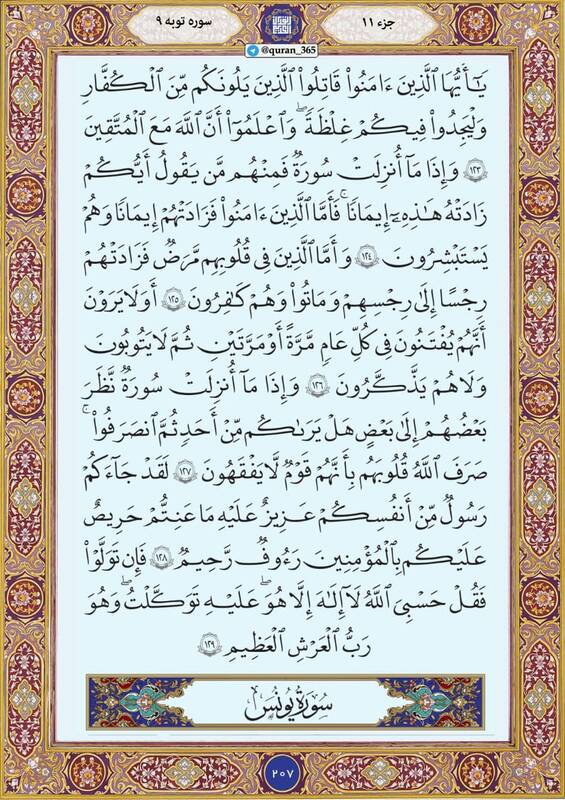 جزء ۱۱
سوره توبه ۹
@quran_365
يَـٰٓأَيُّهَا ٱلَّذِينَ ءَامَنُوا۟ قَـٰتِلُوا۟ ٱلَّذِينَ يَلُونَكُم مِّنَ ٱلْكُفَّارِ
وَلْيَجِدُوا۟ فِيكُمْ غِلْظَةً ۚ وَٱعْلَمُوٓا۟ أَنَّ ٱللَّهَ مَعَ ٱلْمُتَّقِينَ
١٢٣ وَإِذَا مَآ أُنزِلَتْ سُورَةٌ فَمِنْهُم مَّن يَقُولُ أَيُّكُمْ
زَادَتْهُ هَـٰذِهِۦٓ إِيمَـٰنًا ۚ فَأَمَّا ٱلَّذِينَ ءَامَنُوا۟ فَزَادَتْهُمْ إِيمَـٰنًا وَهُمْ
يَسْتَبْشِرُونَ ١٢٤ وَأَمَّا ٱلَّذِينَ فِى قُلُوبِهِم مَّرَضٌ فَزَادَتْهُمْ
رِجْسًا إِلَىٰ رِجْسِهِمْ وَمَاتُوا۟ وَهُمْ كَـٰفِرُونَ ١٢٥ أَوَلَا يَرَوْنَ
أَنَّهُمْ يُفْتَنُونَ فِى كُلِّ عَامٍ مَّرَّةً أَوْ مَرَّتَيْنِ ثُمَّ لَا يَتُوبُونَ
وَلَا هُمْ يَذَّكَّرُونَ ١٢٦ وَإِذَا مَآ أُنزِلَتْ سُورَةٌ نَّظَرَ
بَعْضُهُمْ إِلَىٰ بَعْضٍ هَلْ يَرَىٰكُم مِّنْ أَحَدٍ ثُمَّ ٱنصَرَفُوا۟ ۚ
صَرَفَ ٱللَّهُ قُلُوبَهُم بِأَنَّهُمْ قَوْمٌ لَّا يَفْقَهُونَ ١٢٧ لَقَدْ جَآءَكُمْ
رَسُولٌ مِّنْ أَنفُسِكُمْ عَزِيزٌ عَلَيْهِ مَا عَنِتُّمْ حَرِيصٌ
عَلَيْكُم بِٱلْمُؤْمِنِينَ رَءُوفٌ رَّحِيمٌ ١٢٨ فَإِن تَوَلَّوْا۟
فَقُلْ حَسْبِىَ ٱللَّهُ لَآ إِلَـٰهَ إِلَّا هُوَ ۖ عَلَيْهِ تَوَكَّلْتُ ۖ وَهُوَ
رَبُّ ٱلْعَرْشِ ٱلْعَظِيمِ ١٢٩
سُورَةُ يُونُسَ
٢٠٧